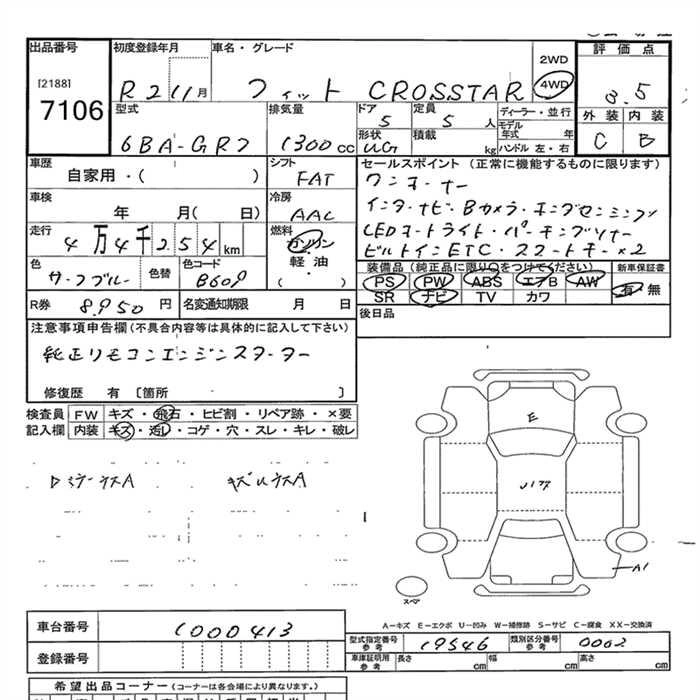 出品番号
[2188]
7106
初度登録年月
R2 11月
車名・グレード
フィット CROSSTAR
2WD
4WD
評価点
3.5
外装 内装
C B
型式
6BA-GR7
排気量
1300cc
ドア
5
定員
5人
ディーラー・並行
モデル年式 年
形状
UG
積載
kg
ハンドル 左・右
車歴
自家用・( )
シフト
FAT
車検
年 月( 日)
冷房
AAC
走行
4万4千254km
燃料
ガソリン
軽・油
( )
色
サーフブルー
色替
色コード
B609
R券 8,950円
名変通知期限 月 日
セールスポイント(正常に機能するものに限ります)
ワンオーナー
インターナビ・Bカメラ・ホンダセンシング
LEDオートライト・パーキングソナー
ビルトインETC・スマートキー×2
装備品(純正品に限り○をつけてください)
PS PW ABS エアB AW
SR ナビ TV カワ
新車保証書
有・無
後日品
注意事項申告欄(不具合内容等は具体的に記入して下さい)
純正リモコンエンジンスターター
修復歴 有 [箇所 ]
検査員記入欄
FW キズ・飛石・ヒビ割・リペア跡・×要
内装 キズ・汚レ・コゲ・穴・スレ・キレ・破レ
E
A1
スペア
A−キズ E−エクボ U−凹み W−補修跡 S−サビ C−腐食 XX−交換済
車台番号
1000413
登録番号
型式指定番号 参考
19546
類別区分番号 参考
0002
車庫証明用 参考
長さ cm 幅 cm 高さ cm
希望出品コーナー(コーナーは各会場により異なります。)